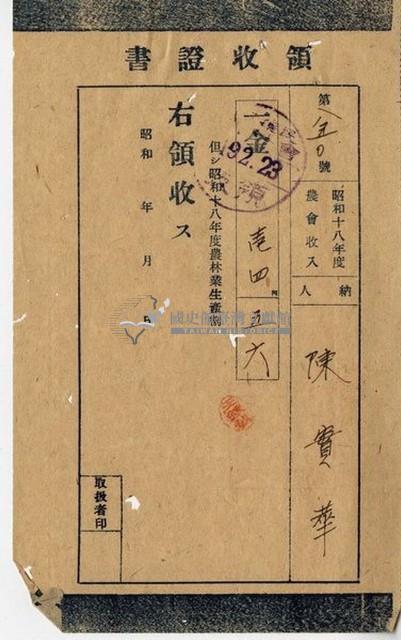 領收證書
第 號
昭和十八年度
農會收入
納人
陳寶華
一金
壱四円五六
但シ昭和十八年度農林業生產割
右領收ス
昭和 年 月 日
取扱者印
92.23
領
國史館臺灣文獻館
TAIWAN HISTORICA